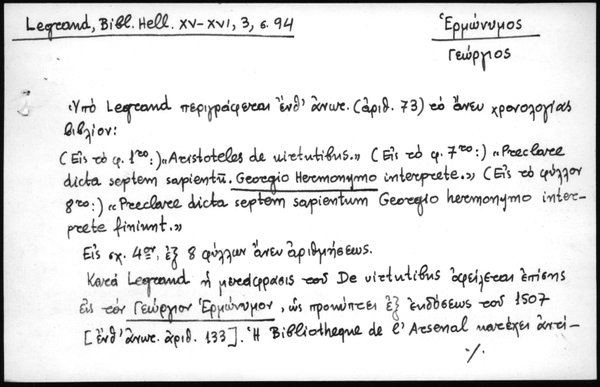 Legrand, Bibl. Hell. XV-XVI, 3, σ. 94
Ἑρμώνυμος
Γεώργιος
Ὑπό Legrand περιγράφεται ἔνθ' ἄνωτ. (ἀριθ. 73) τό ἄνευ χρονολογίας
βιβλίον:
(Εἰς τό φ. 1ro:) «Aristoteles de uirtutibus.» (Εἰς τό φ. 7ro:) «Preclare
dicta septem sapientũ. Georgio Hermonymo interprete.» (Εἰς τό φύλλον
8ro:) «Preeclare dicta septem sapientum Georgio hermonymo inter-
prete finiunt.»
Εἰς σχ. 4ον, ἐξ 8 φύλλων ἄνευ ἀριθμήσεως.
Κατά Legrand ἡ μετάφρασις τοῦ De uirtutibus ὀφείλεται ἐπίσης
εἰς τόν Γεώργιον Ἑρμώνυμον, ὡς προκύπτει ἐξ ἐκδόσεως τοῦ 1507
[ἔνθ' ἄνωτ. ἀριθ. 133]. Ἡ Bibliotheque de l'Arsenal κατέχει ἀντί-
·/.